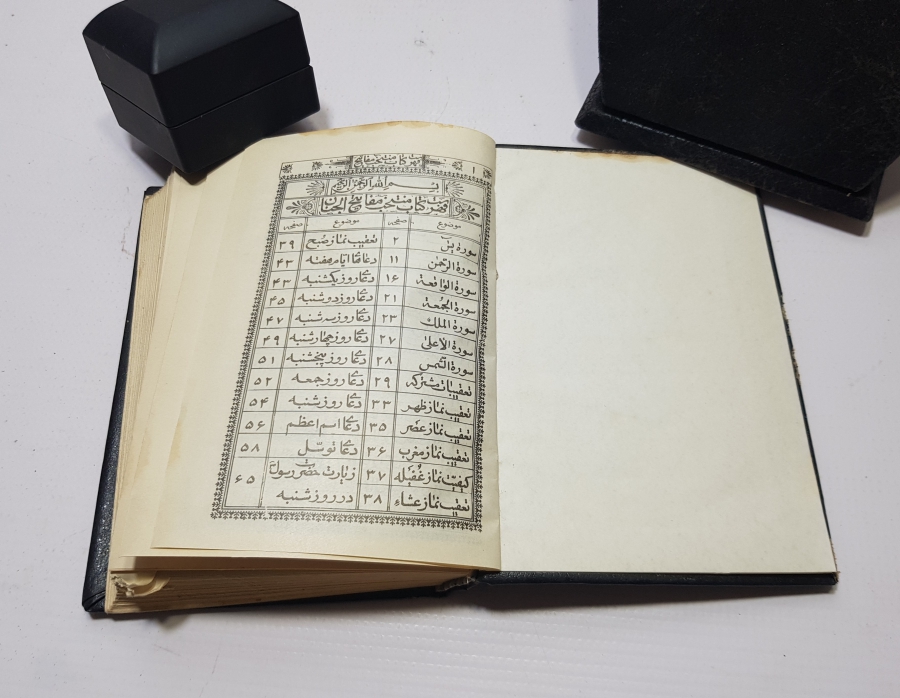 فهرست کتاب منتخب مفاتیح ۱
بسم الله الرحمن الرحیم
فهرست کتاب منتخب مفاتیح الجنان
موضوع صفحه موضوع صفحه
سورهٔ یس ۲ تعقیب نماز صبح ۳۹
سورة الرحمن ۱۱ دعاها ایام هفته ۴۲
سورة الواقعة ۱۶ دعای روز یکشنبه ۴۳
سورة الجمعة ۲۱ دعای روز دوشنبه ۴۵
سورة الملک ۲۳ دعای روز سه شنبه ۴۷
سورة الاعلی ۲۷ دعای روز چهارشنبه ۴۹
سورة الشمس ۲۸ دعای روز پنجشنبه ۵۱
تعقیبات مشترکه ۲۹ دعای روز جمعه ۵۲
تعقیب نماز ظهر ۳۳ دعای روز شنبه ۵۴
تعقیب نماز عصر ۳۵ دعای اسم اعظم ۵۶
تعقیب نماز مغرب ۳۶ دعای توسل ۵۸
کیفیت نماز غفیله ۳۷ زیارت حضرت رسول ۶۵
تعقیب نماز عشاء ۳۸ در روز شنبه